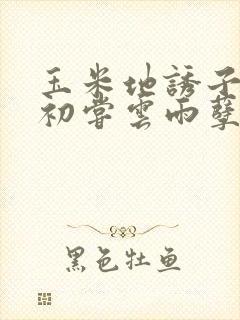 玉米地誘子
初嘗雲雨孽
黑色牡鱼